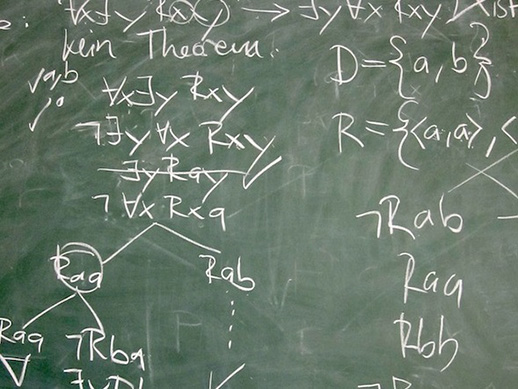 ∀x∃y Rxy → ∃y∀x Rxy ist
kein Theorem:
∀x∃y Rxy
¬∃y∀x Rxy
∃yRay
¬∀xRxa
Raa Rab
¬Rba
D={a,b}
R={<a,a>,<
¬Rab
Raa
Rbb